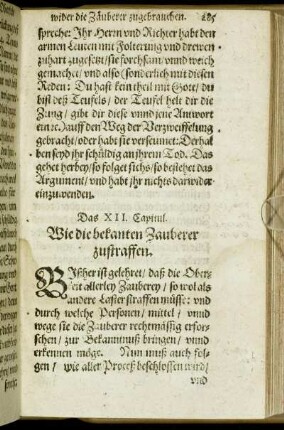 wider die Zäuberer zugebrauchen. 285
spreche: Ihr Herrn vnd Richter habt den
armen Leuten mit Folterung vnd drewen
zuhart zugesetzt/ sie forchsam/ vnnd weich
gemachet/ vnd also (sonderlich mit diesen
Reden: Du hast kein theil mit Gott/ du
bist deß Teufels/ der Teufel helt dir die
Zung/ gibt dir diese vnnd jene Antwort
ein ꝛc.) auff den Weg der Verzweiffelung
gebracht/ oder habt sie verseumet: Derhal
ben seyd jhr schüldig an jhrem Tod. Das
gehet herbey/ so folget sichs/ so bestehet das
Argument/ vnd habt jhr nichts darwider
einzuwenden.
Das XII. Capitul.
Wie die bekanten Zauberer
zustraffen.
BIßher ist gelehret/ daß die Ober-
keit allerley Zauberey/ so wol als
andere Laster straffen müsse: vnd
durch welche Personen/ mittel/ vnnd
wege sie die Zäuberer rechtmässig erfor-
schen/ zur Bekanntnuß bringen/ vnnd
erkennen möge. Nun muß auch fol-
gen/ wie aller Proceß beschlossen wird/
vnd